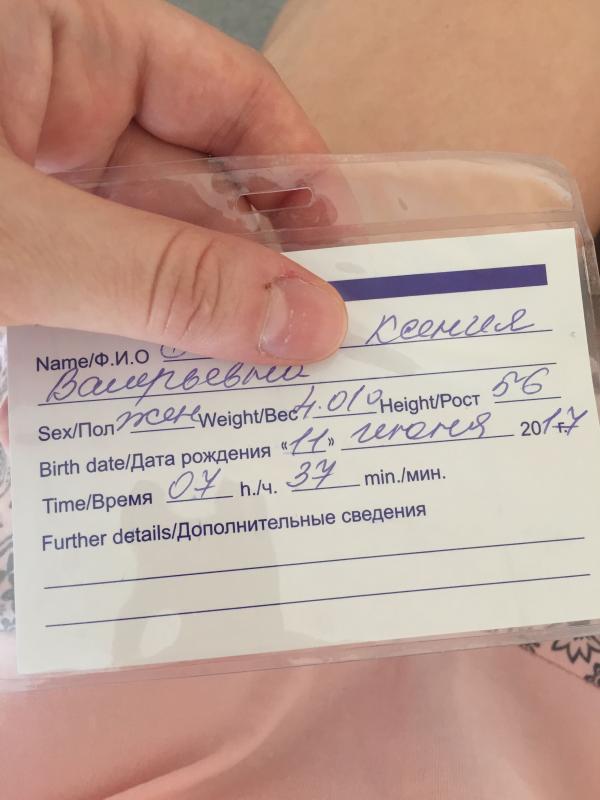 Name/Ф.И.О Ксения
Валерьевны
Sex/Пол жен Weight/Вес 4.010 Height/Рост 56
Birth date/Дата рождения «11» июня 2017 г.
Time/Время 07 h./ч. 37 min./мин.
Further details/Дополнительные сведения